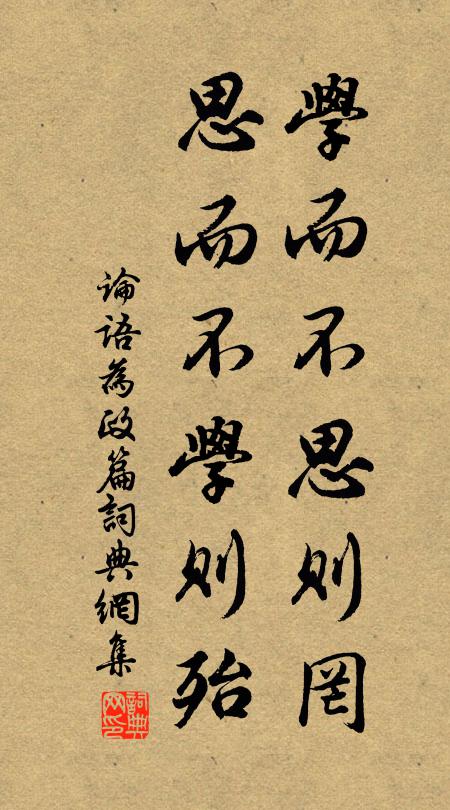 學而不思則罔
思而不學則殆
論語為政篇詞典網集
詞典网印